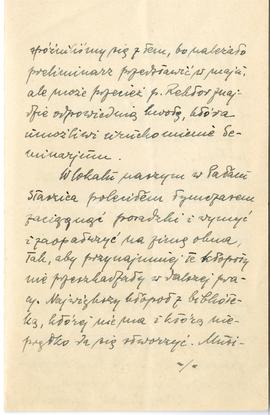 spóźniliśmy się z tem, bo należało
preliminarz przedstawić w maju,
ale może przecież p. Rektor znaj-
dzie odpowiednią kwotę, która
umożliwi uruchomienie Se-
minarjum.
W lokalu naszym w Pałacu
Staszica poleciłem tymczasem
zaciągnąć posadzki i wymyć
i zaopatrzyć na zimę okna,
tak, aby przynajmniej te kłopoty
nie przeszkadzały w dalszej pra-
cy. Największy kłopot z bibljote-
ką, której nie ma i która nie-
prędko da się stworzyć. Musi-
-/-